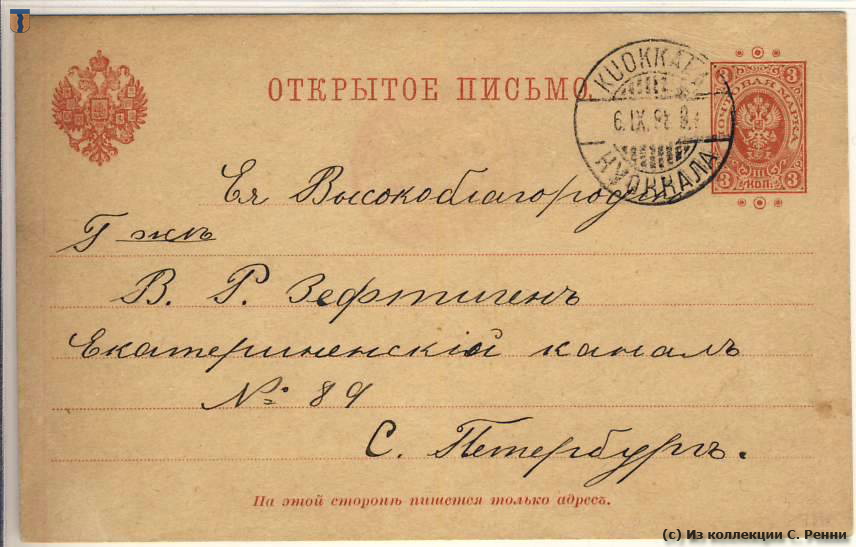 ОТКРЫТОЕ ПИСЬМО.
KUOKKALA
6.IX.9
КУОККАЛА
3 3
ПОЧТОВАЯ МАРКА
3 III КОП. 3
Ея Высокоблагородiю
Г-жѣ
В. Р. Зефтигенъ
Екатериненскiй каналъ
№ 89
С. Петербургъ.
На этой сторонѣ пишется только адресъ.
(c) Из коллекции С. Ренни